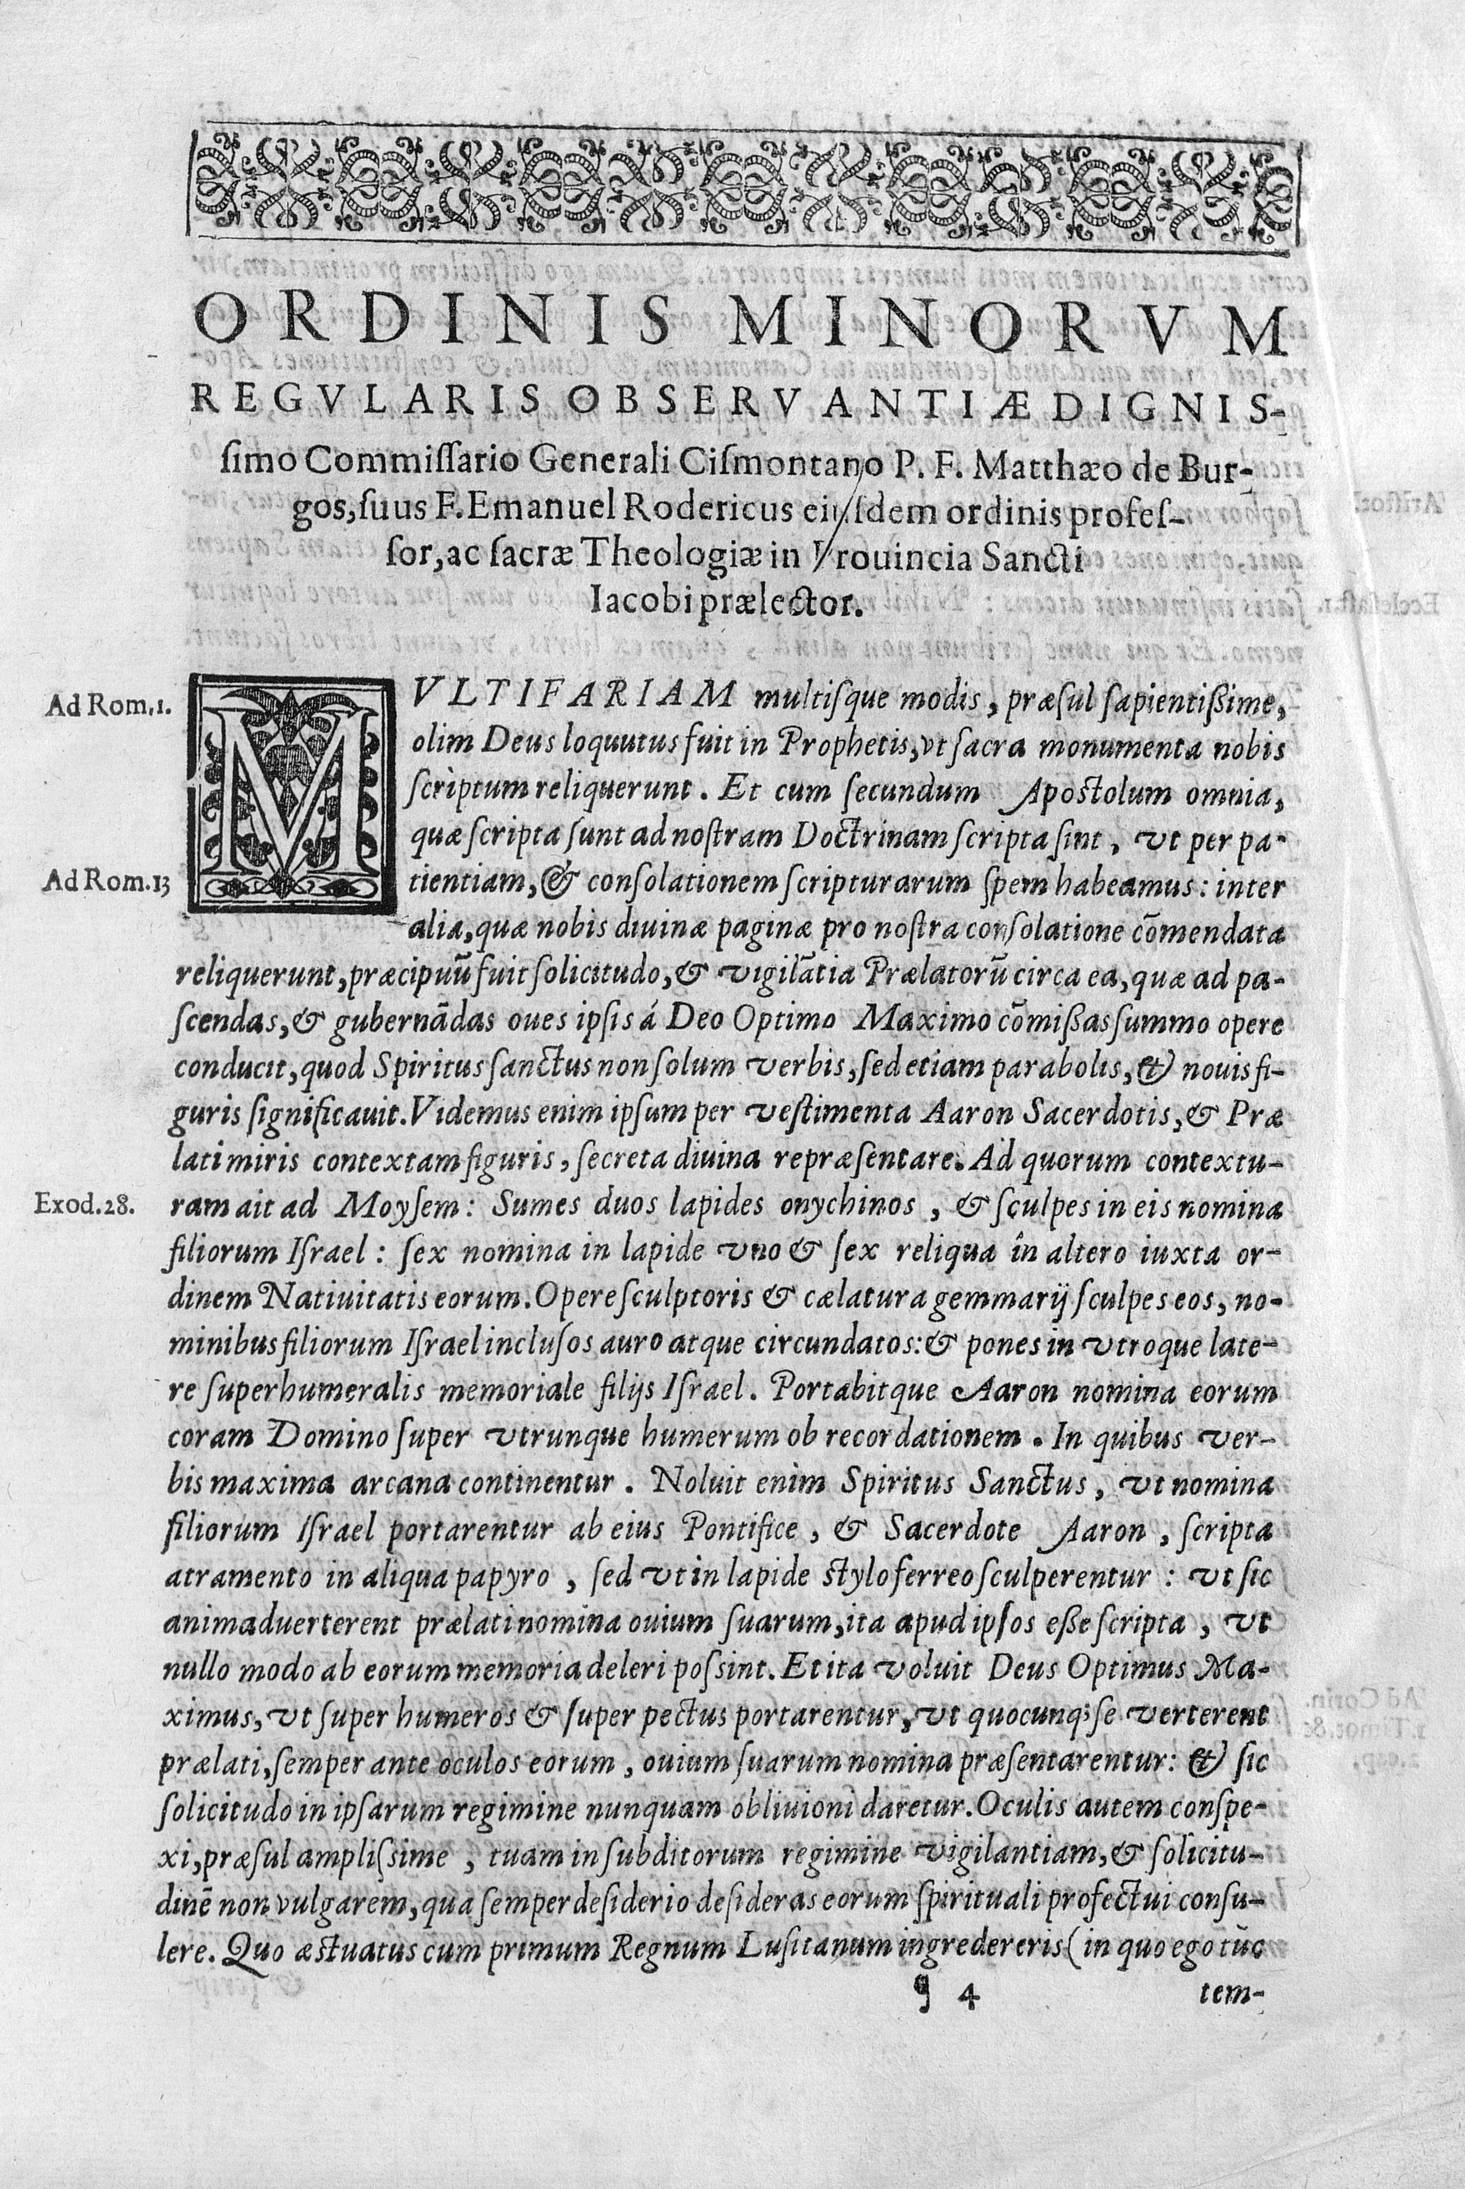 ORDINIS MINORVM
REGVLARIS OBSERVANTIÆ DIGNIS-
ſimo Commiſſario Generali Ciſmontano P. F. Matthæo de Bur-
gos, ſuus F. Emanuel Rodericus eiuſdem ordinis profeſ-
ſor, ac ſacræ Theologiæ in Prouincia Sancti
Iacobi prælector.
Ad Rom. 1.
MVLTIFARIAM multiſque modis, præſul ſapientißime,
olim Deus loquutus fuit in Prophetis, vt ſacra monumenta nobis
ſcriptum reliquerunt. Et cum ſecundum Apoſtolum omnia,
quæ ſcripta ſunt ad noſtram Doctrinam ſcripta ſint, vt per pa-
Ad Rom. 13
tientiam, & conſolationem ſcripturarum ſpem habeamus: inter
alia, quæ nobis diuinæ paginæ pro noſtra conſolatione cōmendata
reliquerunt, præcipuũ fuit ſolicitudo, & vigilãtia Prælatorũ circa ea, quæ ad pa-
ſcendas, & gubernãdas oues ipſis á Deo Optimo Maximo cōmißas ſummo opere
conducit, quod Spiritus ſanctus non ſolum verbis, ſed etiam parabolis, & nouis fi-
guris ſignificauit. Videmus enim ipſum per veſtimenta Aaron Sacerdotis, & Præ
lati miris contextam figuris, ſecreta diuina repræſentare. Ad quorum contextu-
Exod. 28.
ram ait ad Moyſem: Sumes duos lapides onychinos, & ſculpes in eis nomina
filiorum Iſrael: ſex nomina in lapide vno & ſex reliqua in altero iuxta or-
dinem Natiuitatis eorum. Opere ſculptoris & cælatura gemmarij ſculpes eos, no-
minibus filiorum Iſrael incluſos auro atque circundatos: & pones in vtroque late-
re ſuperhumeralis memoriale filijs Iſrael. Portabitque Aaron nomina eorum
coram Domino ſuper vtrunque humerum ob recordationem. In quibus ver-
bis maxima arcana continentur. Noluit enim Spiritus Sanctus, vt nomina
filiorum Iſrael portarentur ab eius Pontifice, & Sacerdote Aaron, ſcripta
atramento in aliqua papyro, ſed vt in lapide ſtylo ferreo ſculperentur: vt ſic
animaduerterent prælati nomina ouium ſuarum, ita apud ipſos eße ſcripta, vt
nullo modo ab eorum memoria deleri poſsint. Et ita voluit Deus Optimus Ma-
ximus, vt ſuper humeros & ſuper pectus portarentur, vt quocunq; ſe verterent
prælati, ſemper ante oculos eorum, ouium ſuarum nomina præſentarentur: & ſic
ſolicitudo in ipſarum regimine nunquam obliuioni daretur. Oculis autem conſpe-
xi, præſul ampliſsime, tuam in ſubditorum regimine vigilantiam, & ſolicitu-
dinẽ non vulgarem, qua ſemper deſiderio deſideras eorum ſpirituali profectui conſu-
lere. Quo æſtuatus cum primum Regnum Luſitanum ingredereris (in quo ego tũc
¶ 4 tem-